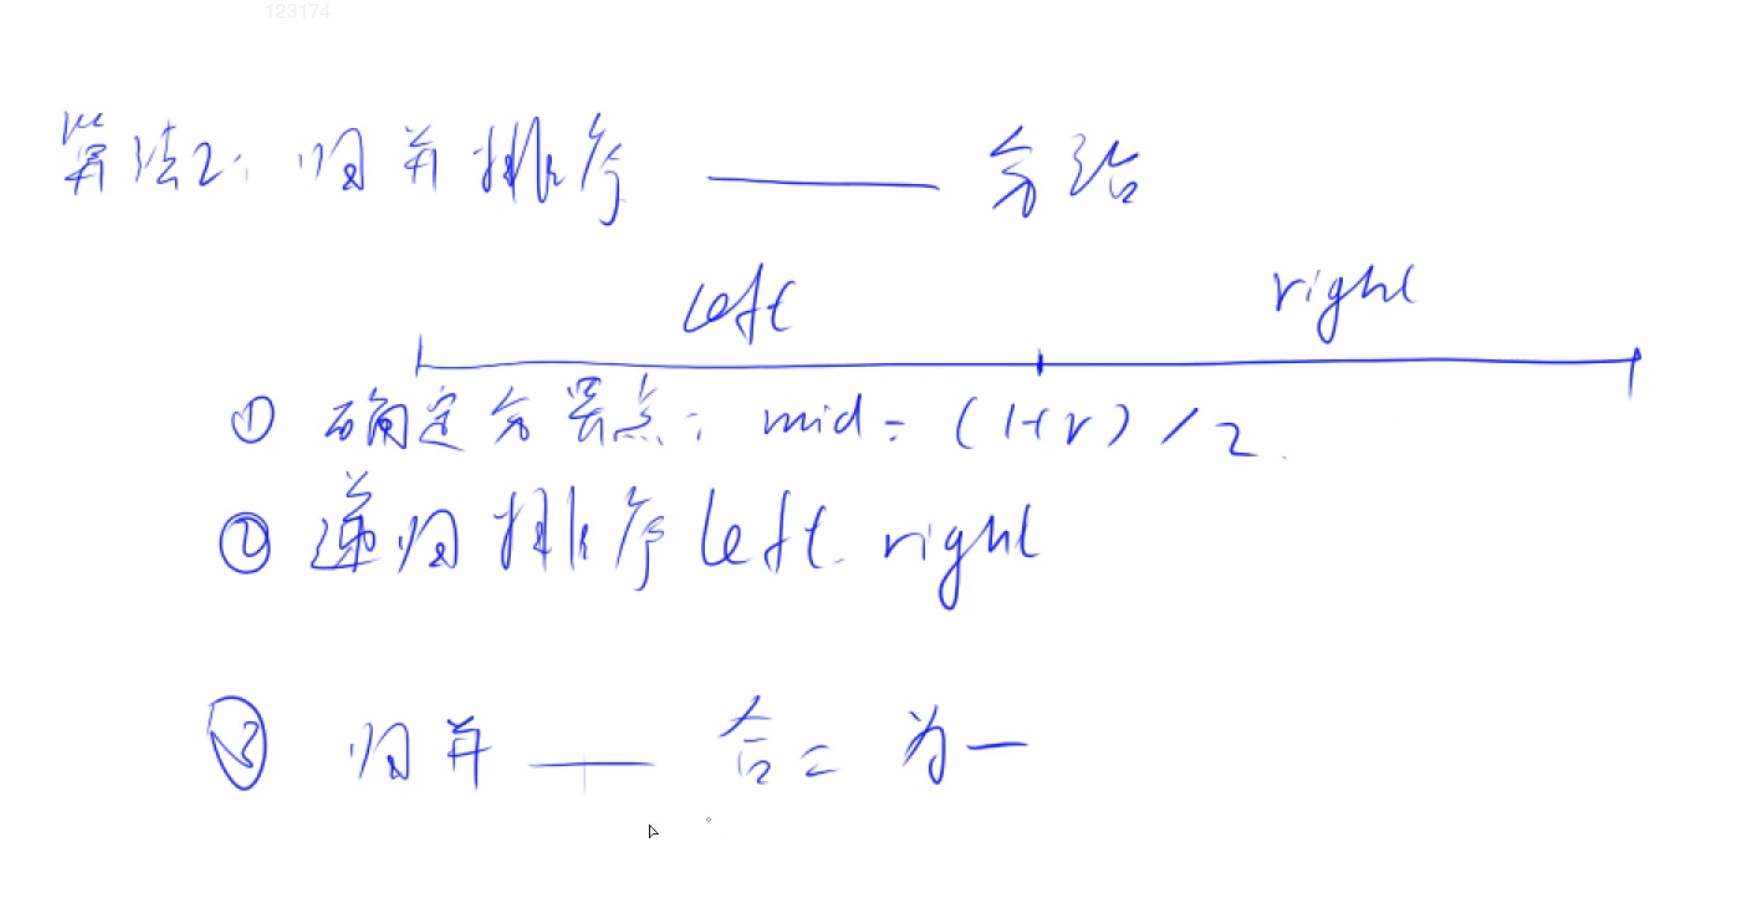 123174
算法2: 归并排序 —— 分治
left right
① 确定分界点: mid = (l+r) / 2.
② 递归排序 left. right
③ 归并 —— 合二为一